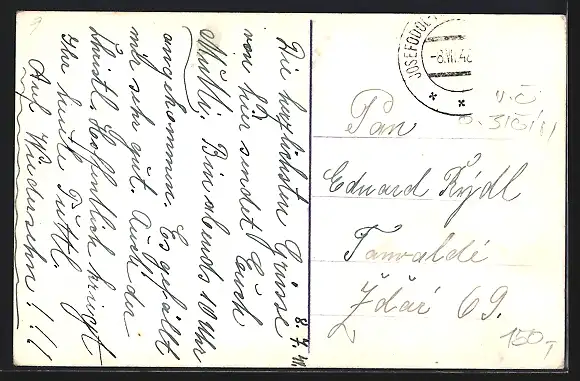 Die herzlichsten Grüsse
von hier sendet Euch
Mutti. Bin abends 10 Uhr
angekommen. Es gefällt
mir sehr gut. Auch da
Christl. Hoffentlich kriegt
Ihr heute Puttl.
Auf Wiedersehn!!!
8. 7. 
JOSEFODOL
-8.VII.42
Pan
Eduard Rýdl
Tanvaldé
Ždár 69.
150,-